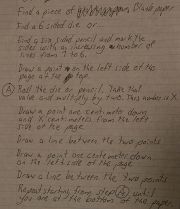 Find a piece of Blank paper
Find a 6 sided die or...
Find a six sided pencil and mark the
sides with an increasing number of
lines from 1 to 6.
Draw a point on the left side of the
page at the top.
A Roll the die or pencil, take that
value and multiply by two. This number is X.
Draw a point one centimeter down
and X centimeters from the left
side of the page.
Draw a line between the two points
Draw a point one centimeter down
on the left side of the page.
Draw a line between the two points
Repeat starting from step A until
you are at the bottom of the paper.